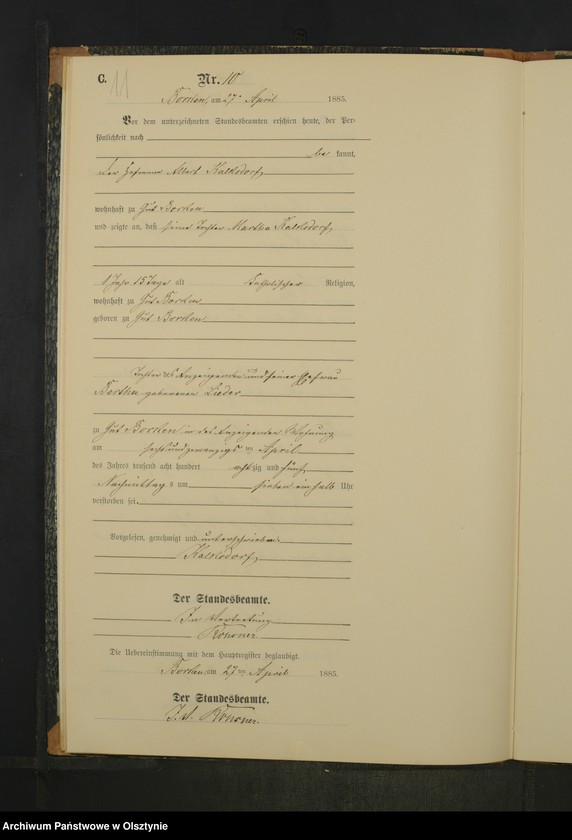 C. 11
Nr. 10
Borken, am 27ten April 1885.
Vor dem unterzeichneten Standesbeamten erschien heute, der Per-
sönlichkeit nach
be kannt,
der Hofmann Albert Kalksdorf,
wohnhaft zu Gut Borken
und zeigte an, daß seine Tochter Martha Kalksdorf,
1 Jahr 15 Tage alt katholischer Religion,
wohnhaft zu Gut Borken
geboren zu Gut Borken
Tochter des Anzeigenden und seiner Ehefrau
Bertha geborenen Lieder
zu Gut Borken in des Anzeigenden Wohnung
am sechsundzwanzigsten April
des Jahres tausend acht hundert achtzig und fünf
Nachmittags um sieben einhalb Uhr
verstorben sei.
Vorgelesen, genehmigt und unterschrieben.
Kalksdorf
Der Standesbeamte.
In Vertretung
Die Uebereinstimmung mit dem Hauptregister beglaubigt.
Borken am 27ten April 1885.
Der Standesbeamte.
I. V.
Archiwum Państwowe w Olsztynie